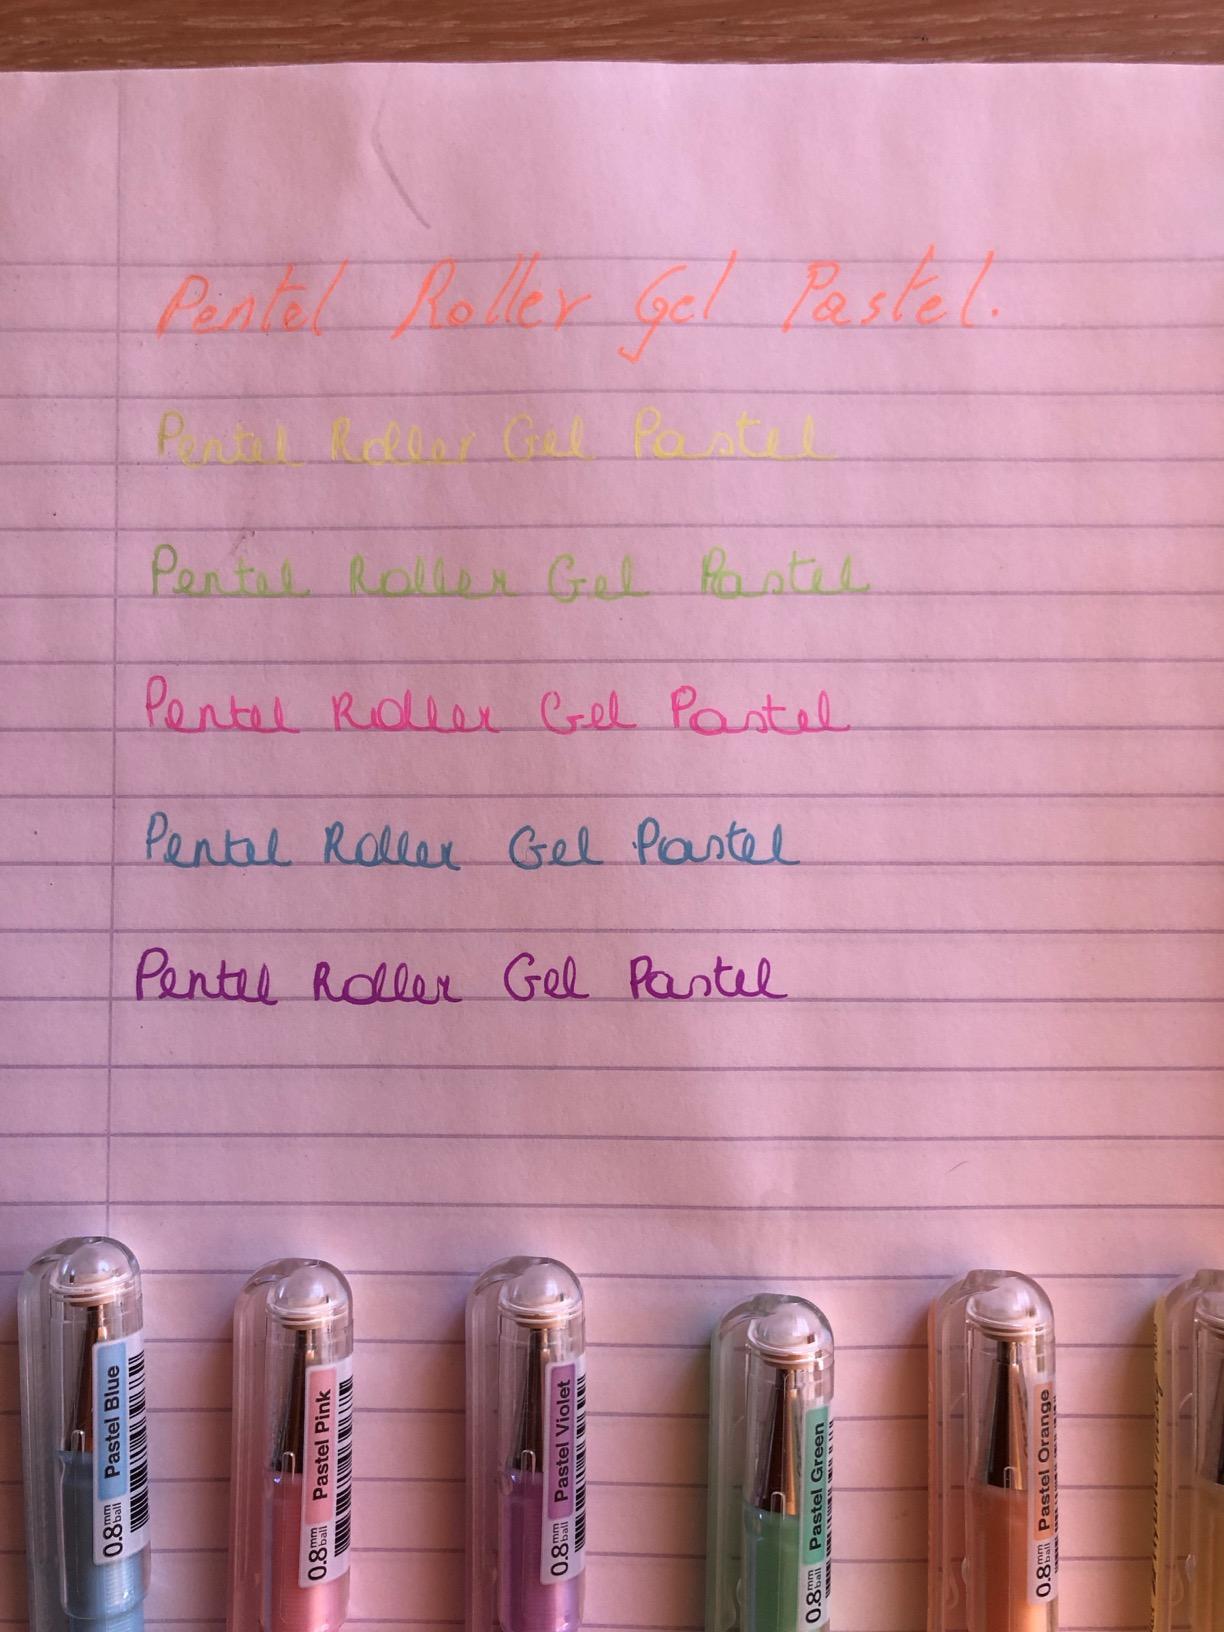 Pentel Roller Gel Pastel.
Pentel Roller Gel Pastel
Pentel Roller Gel Pastel
Pentel Roller Gel Pastel
Pentel Roller Gel Pastel
Pentel Roller Gel Pastel
0.8mm ball Pastel Blue
0.8mm ball Pastel Pink
0.8mm ball Pastel Violet
0.8mm ball Pastel Green
0.8mm ball Pastel Orange